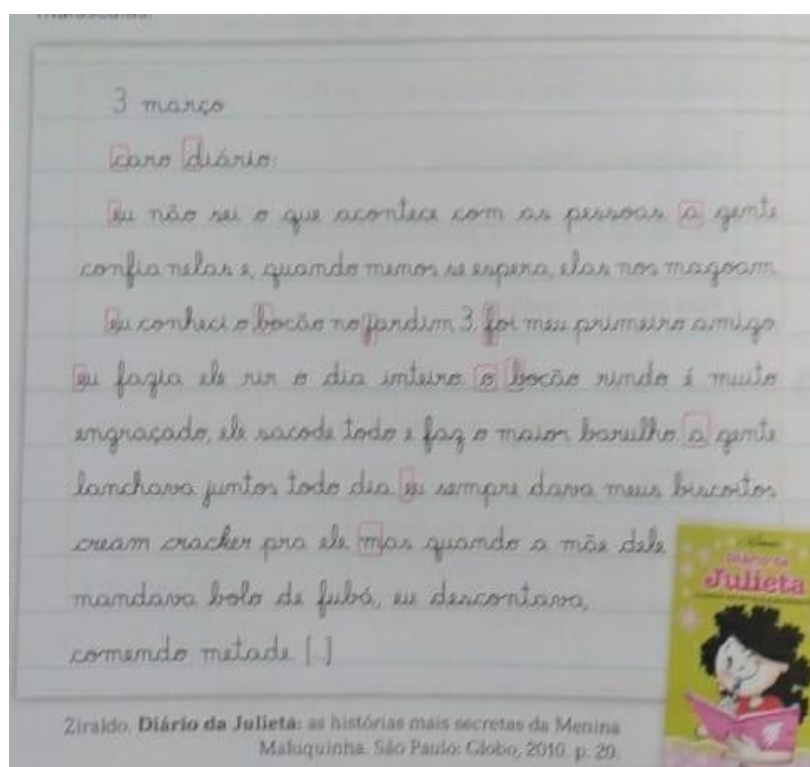 3 março
caro diário:
eu não sei o que acontece com as pessoas a gente
confia nelas e, quando menos se espera, elas nos magoam
eu conheci o bocão no jardim 3. foi meu primeiro amigo
eu fazia ele rir o dia inteiro o bocão rindo é muito
engraçado, ele sacode todo e faz o maior barulho a gente
lanchava juntos todo dia eu sempre dava meus biscoitos
cream cracker pra ele mas quando a mãe dele
mandava bolo de fubá, eu descontava,
comendo metade [...]
Diário da
Julieta
Ziraldo. Diário da Julieta: as histórias mais secretas da Menina
Maluquinha. São Paulo: Globo, 2010. p. 20.